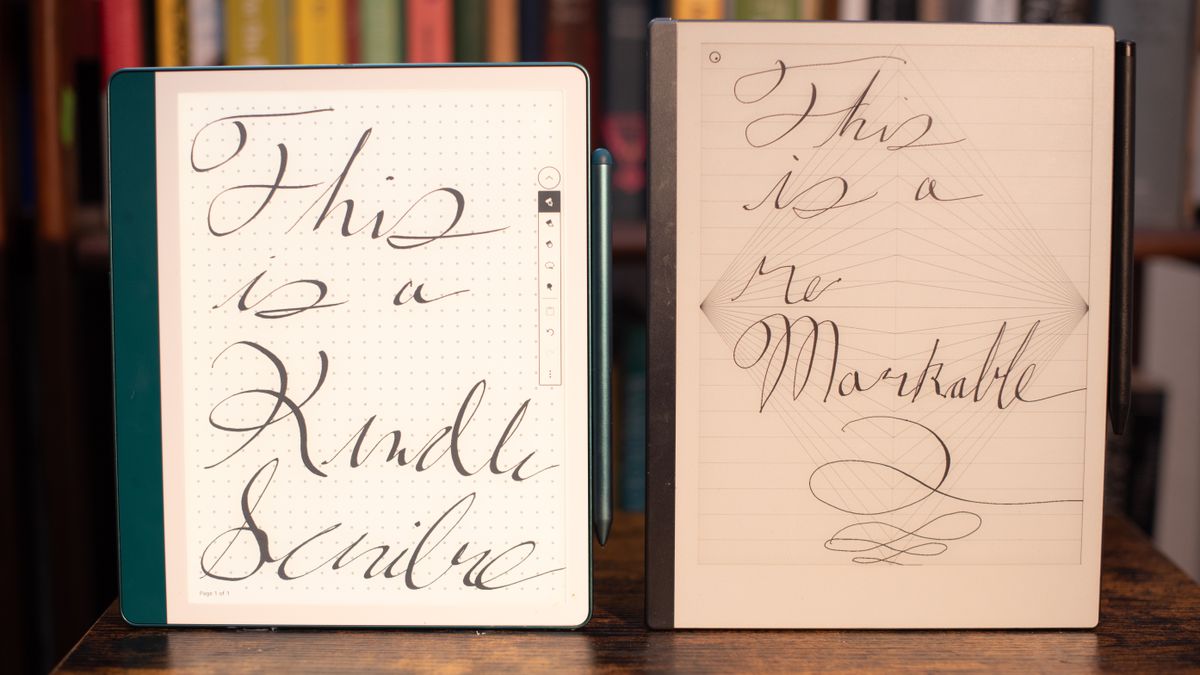 This
is a
Kindle
Scribe
Page 1 of 1
This
is a
re
Markable